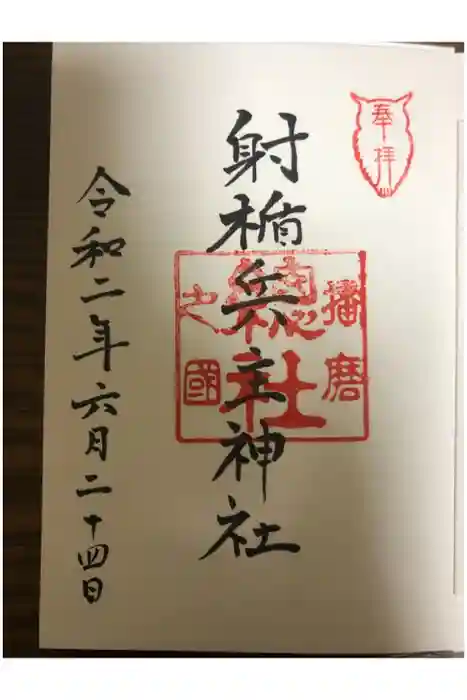 奉拝
播磨
総社
之國
射楯兵主神社
令和二年六月二十四日